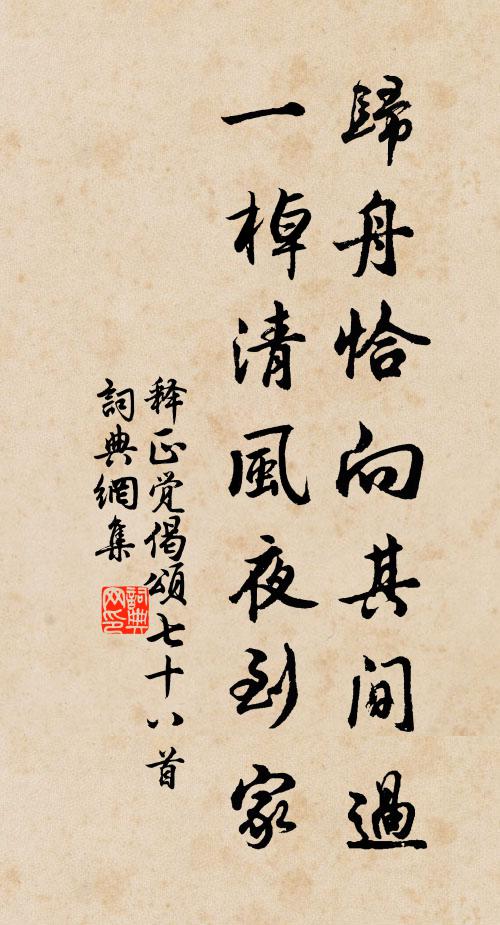 歸舟恰向其間過
一棹清風夜到家
释正觉偈頌七十八首
詞典網集
詞典
网印